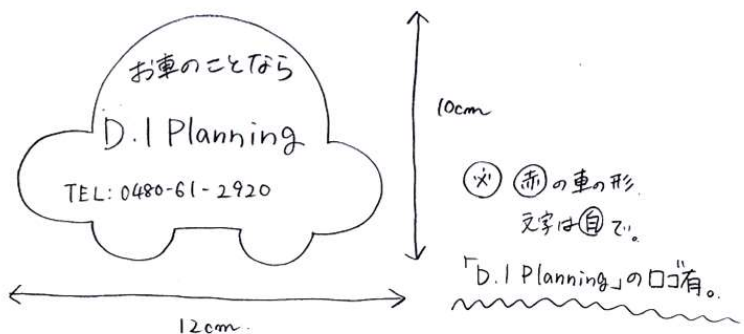 お車のことなら
D.I Planning
TEL: 0480-61-2920
10cm
12cm.
※ 赤の車の形.
文字は白で。
「D.I Planning」のロゴ有。